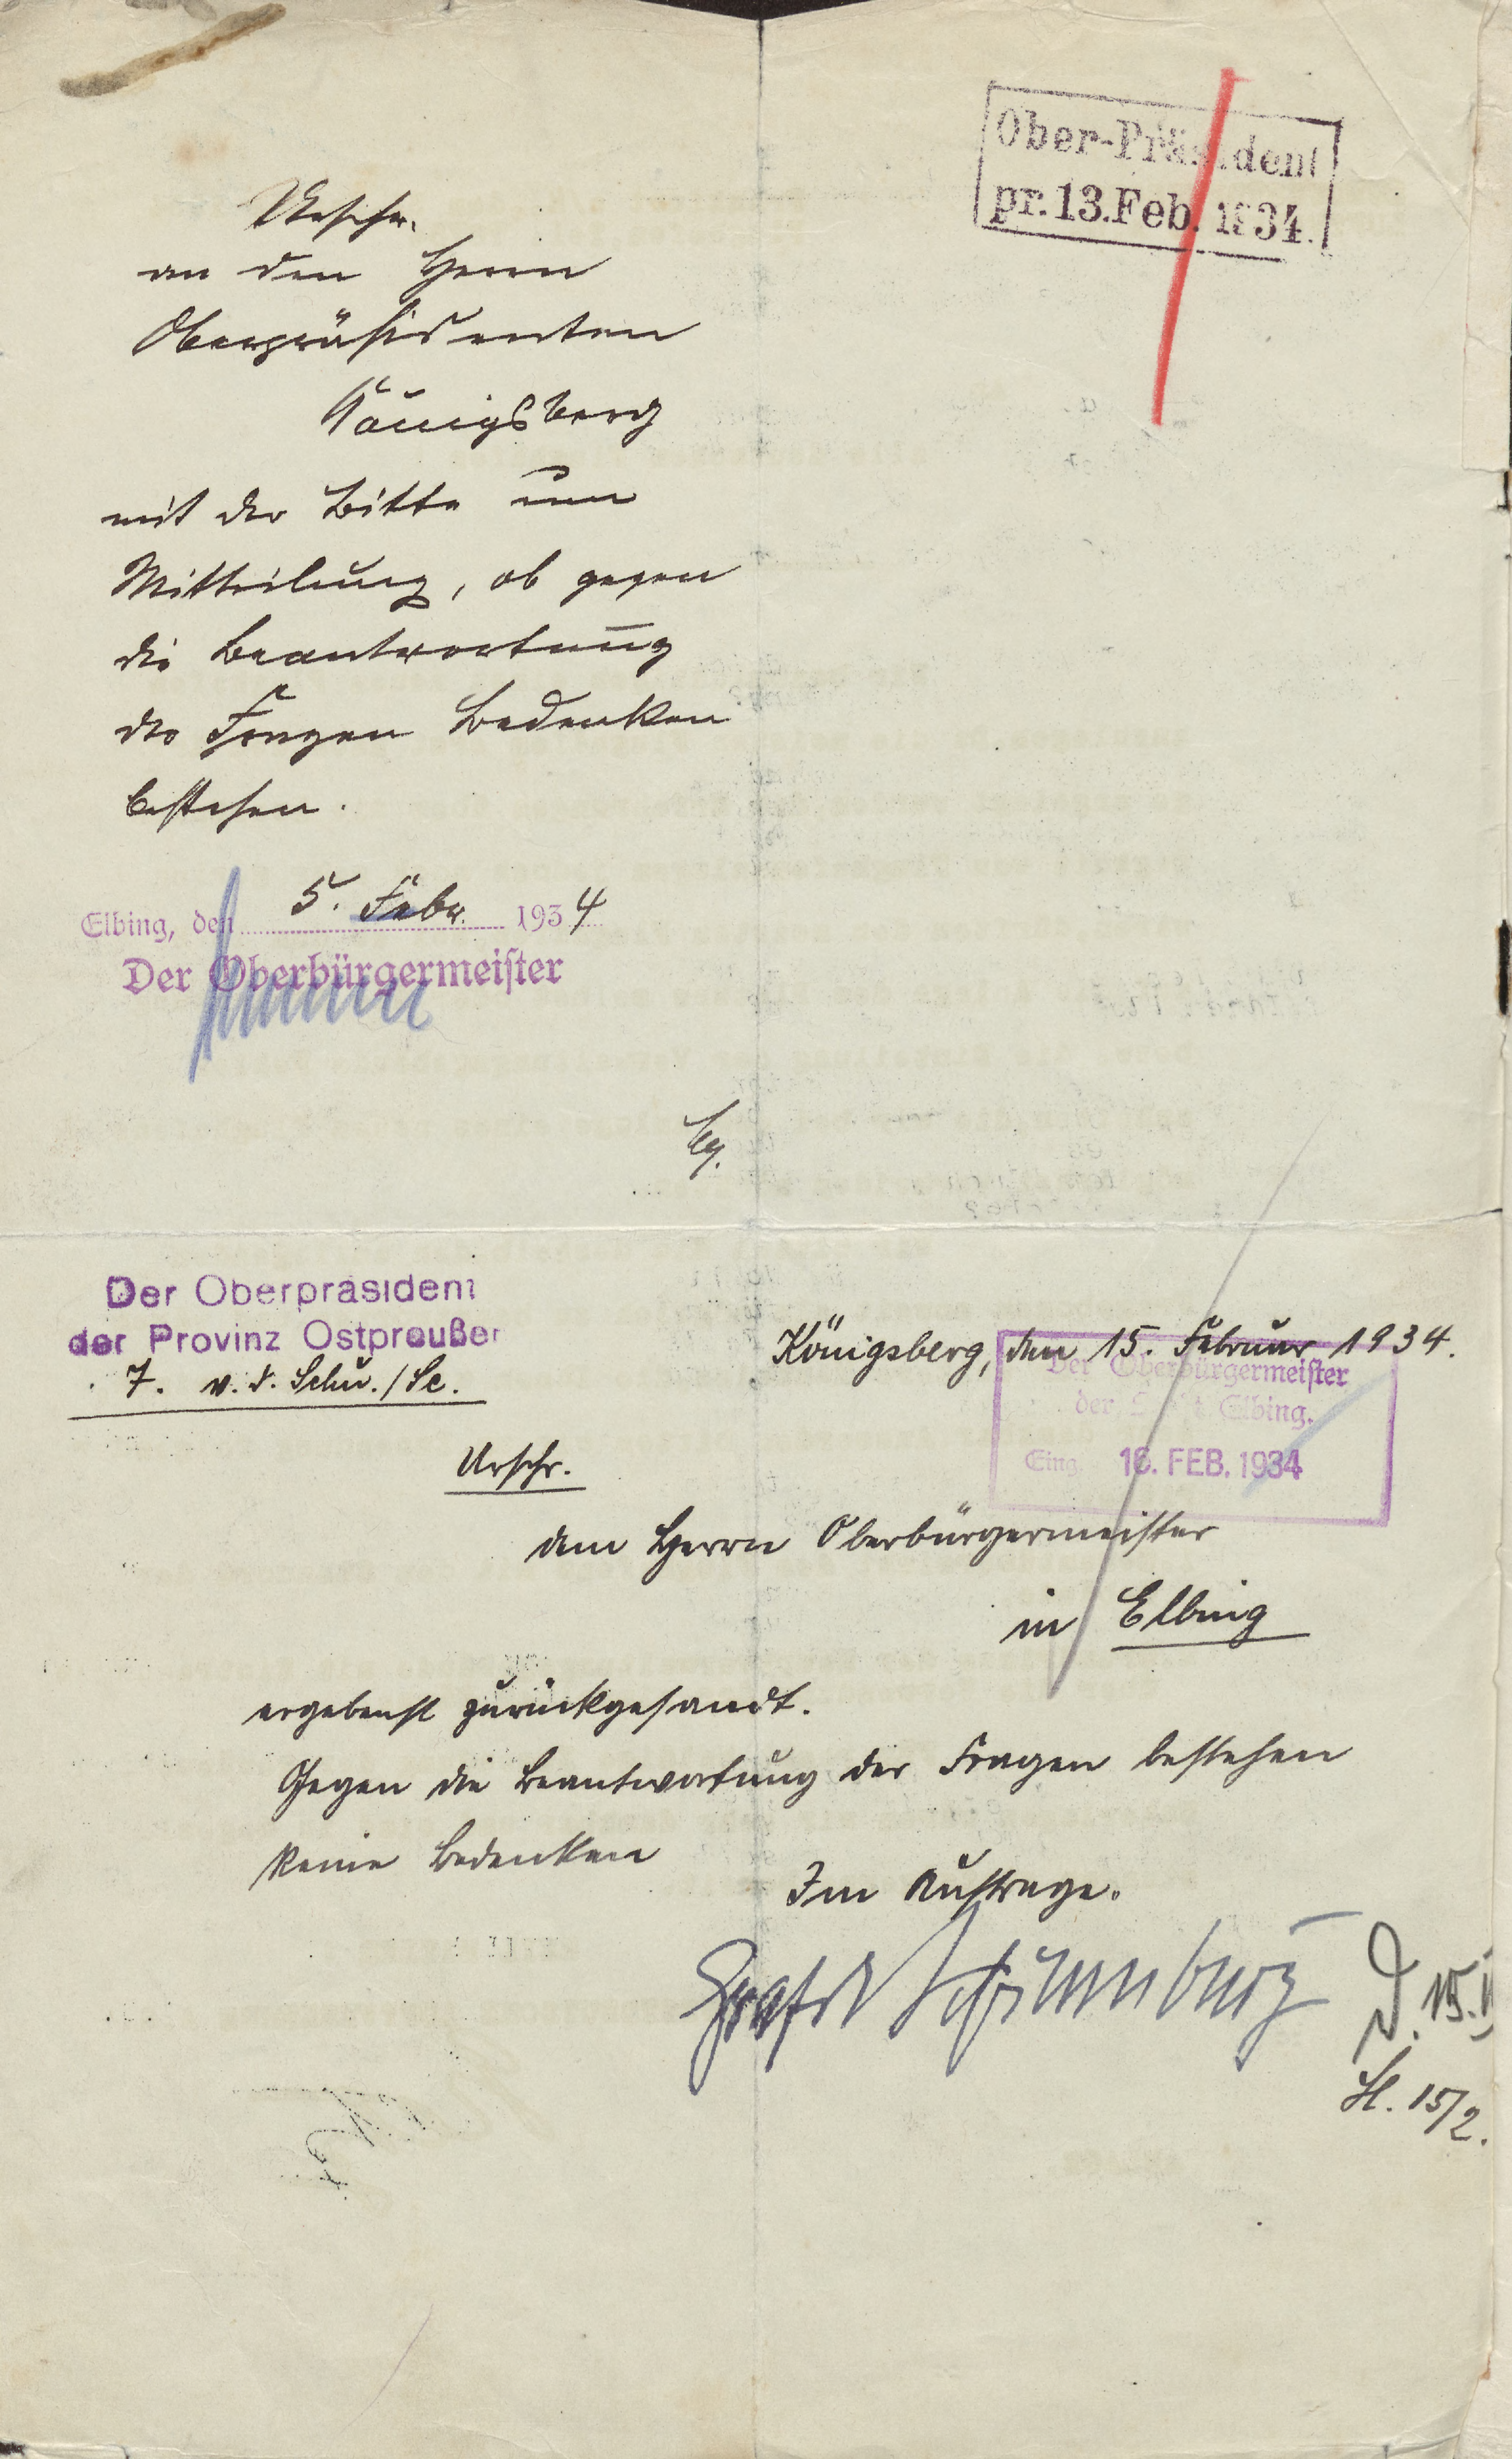 Ober-Präsident
pr. 13. Feb. 1934.
Urschr.
an den Herrn
Oberpräsidenten
Königsberg
mit der Bitte um
Mitteilung, ob gegen
die Beantwortung
der Fragen Bedenken
bestehen.
Elbing, den 5. Febr. 1934
Der Oberbürgermeister
Der Oberpräsident
der Provinz Ostpreußen
7. v. d. Schu./Sc.
Königsberg, den 15. Februar 1934.
Der Oberbürgermeister
der Stadt Elbing.
Eing. 16. FEB. 1934
Urschr.
dem Herrn Oberbürgermeister
in Elbing
ergebenst zurückgesandt.
Gegen die Beantwortung der Fragen bestehen
keine Bedenken
Im Auftrage.
D. 15.II
15/2.